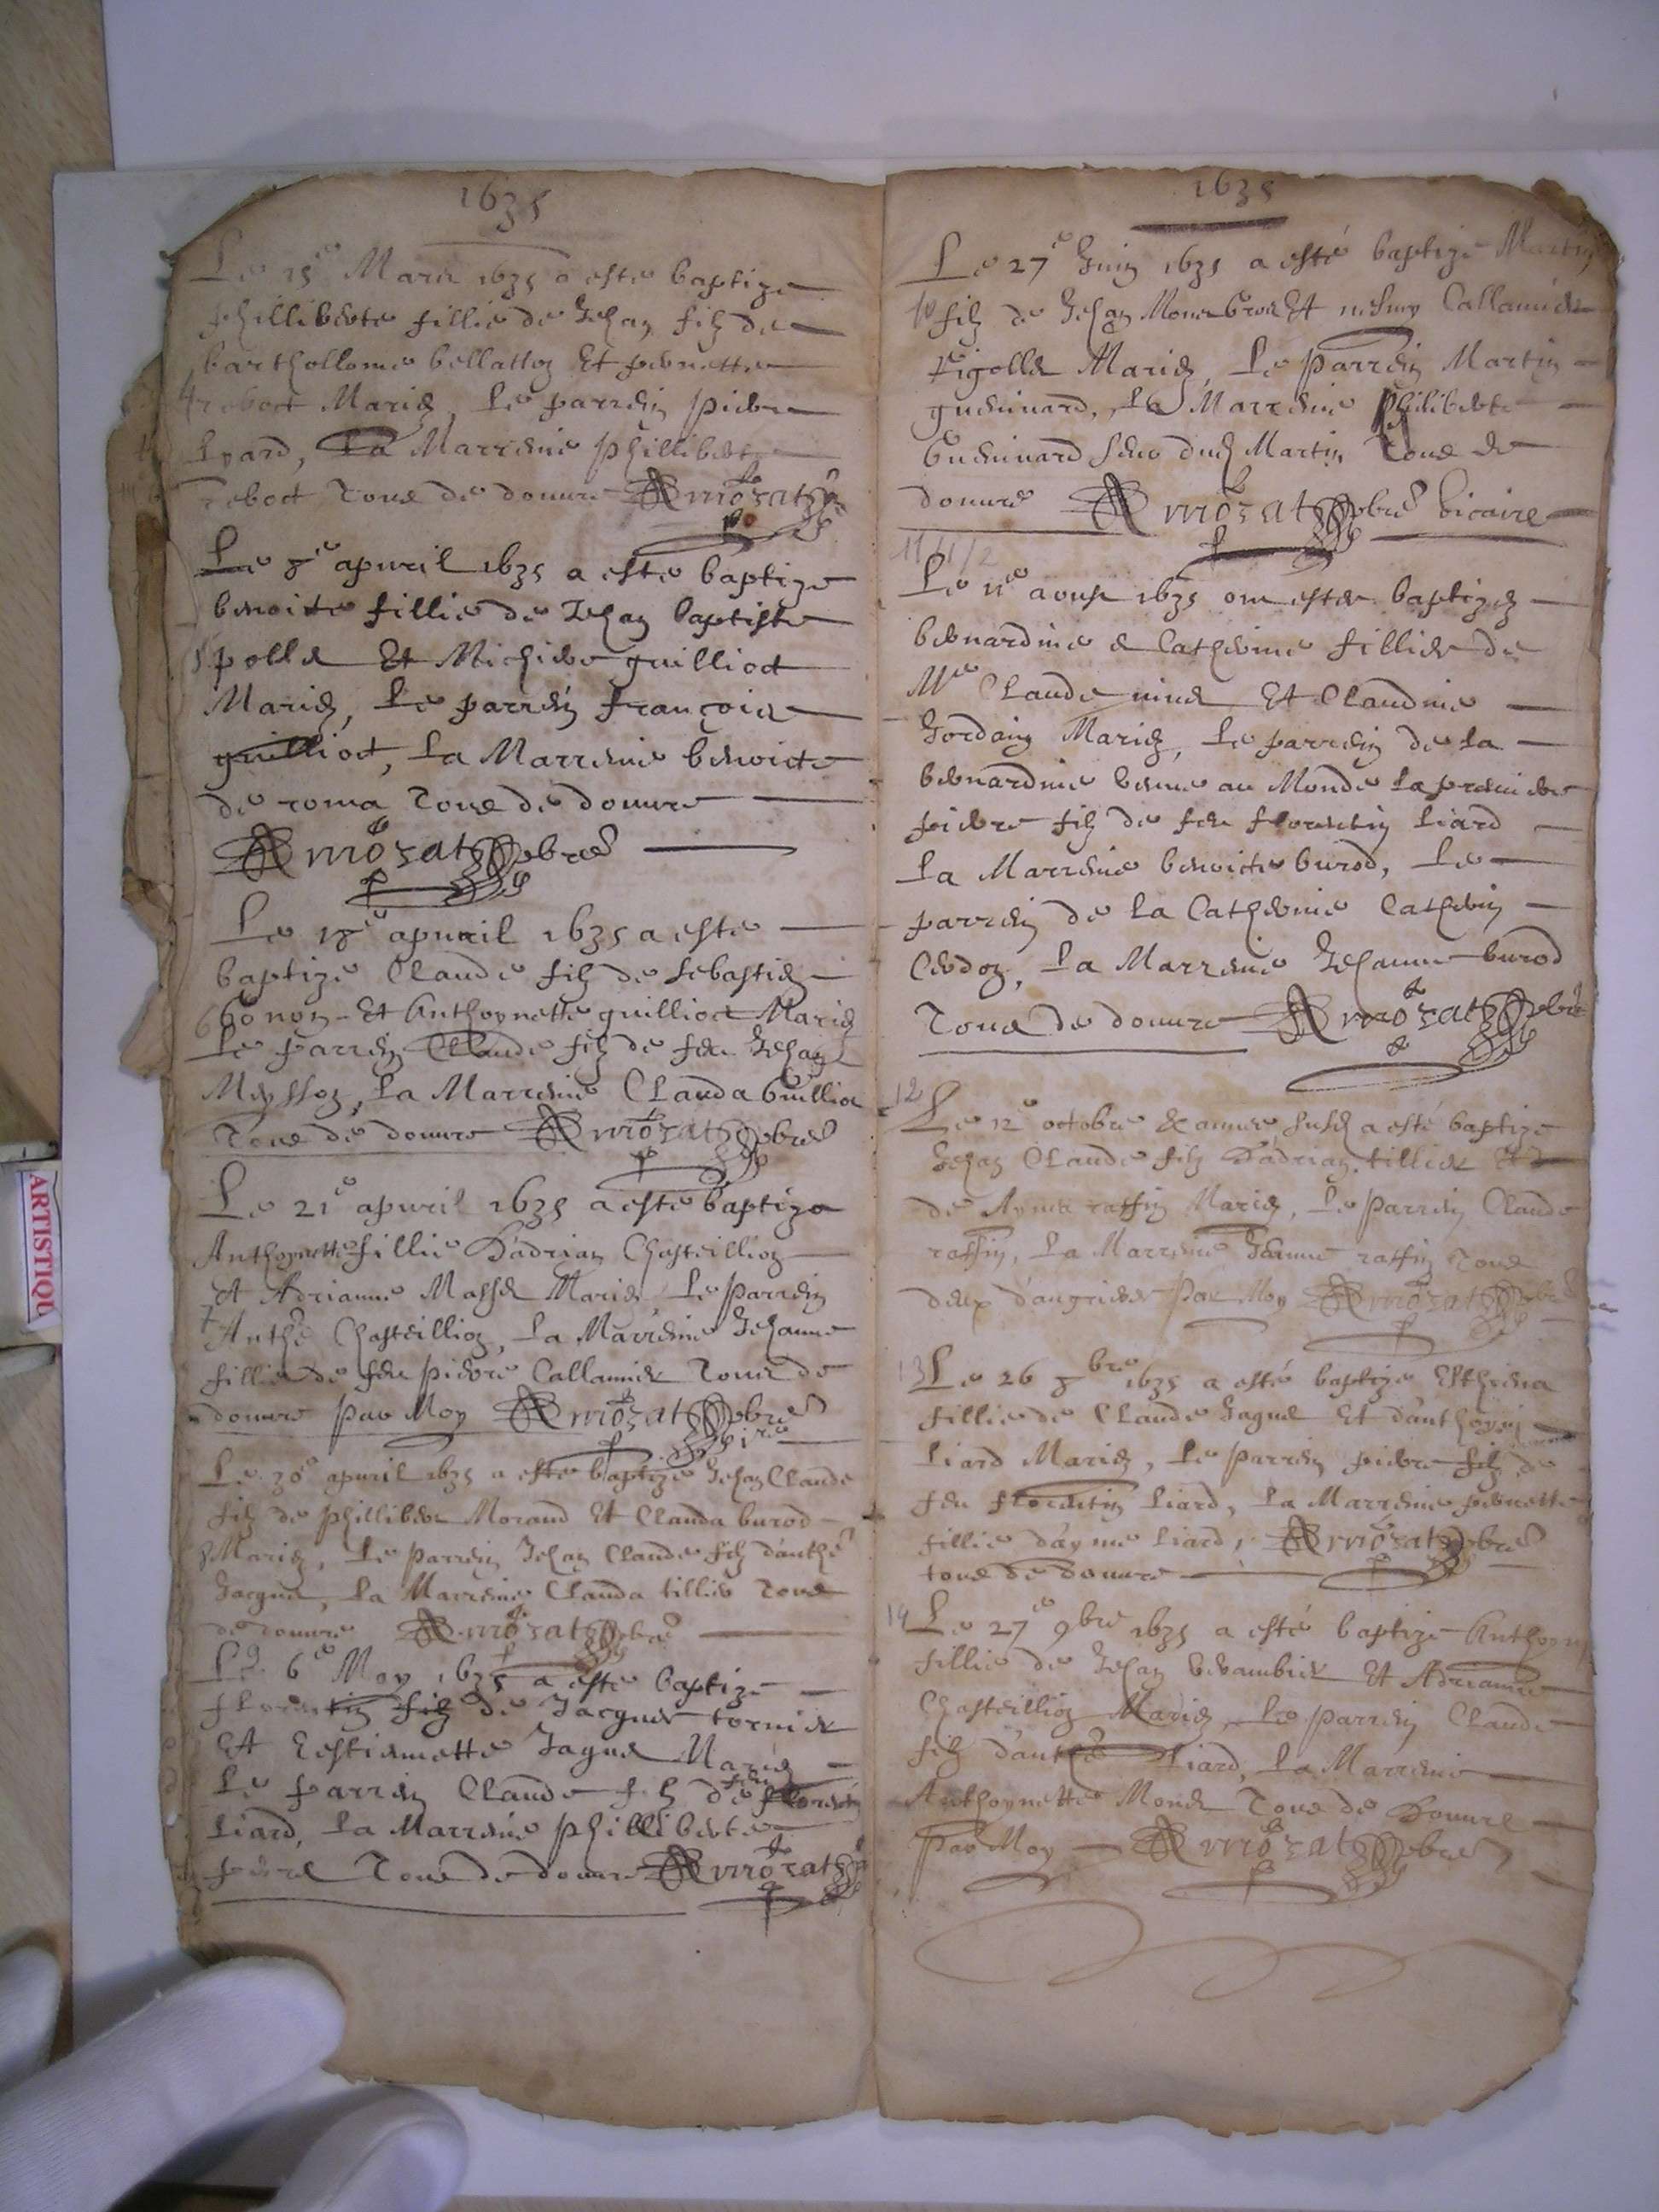 1635
Le 15e Mars 1635 a este baptize
phillib̄erte fillie de Jehan filz de
bartholome bellatton Et pernette
4 reboct Mariez, Le parrein pierre
Lyard, La Marreine phillib̄erte
reboct Tous de douure Amozat pbre
Le 8e apuril 1635 a este baptize
benoite fillie de Jehan baptiste
5 polla Et Michiere guilliod
Mariez, Le parrein françois
guilliod, La Marreine benoicte
de roma Tous de douure
Amozat pbre
Le 18e apuril 1635 a este
baptize Claude filz de sebastien
6 bonon Et Anthoynette guilliod Mariez
Le parrein Claude filz de feu Jehan
Meysson, La Marreine Clauda Guilliod
Tous de douure Amozat pbre
Le 21e apuril 1635 a este baptize
Anthoynette fillie D'adrian Chasteillion
Et Adrianne Masse Mariez, Le parrein
7 Anthe Chasteillion, La Marreine Jehanne
fillie de feu pierre Callamier Tous de
douure par Moy Amozat pbre
Le 30e apuril 1635 a este baptize Jehan Claude
filz de phillibert Morand Et Clauda burod
8 Mariez, Le parrein Jehan Claude filz d'anthe
Jagues, La Marreine Clauda tillier Tous
de douure Amozat pbre
Le 6e May 1635 a este baptize
florentin filz de Jacques tornier
Et Estiennette Jague Mariez
Le parrein Claude filz de feu florentin
Liard, La Marreine phillib̄erte
Tous de douure Amozat
1635
Le 27e Juin 1635 a esté baptize Martin
10 filz de Jehan Et Callamier
Mariez, Le parrein Martin
guennard, La Marreine philiberte
Guennard seur dud Martin Tous de
douure Amozat pbre Vicaire
11/11/2
Le 11e aoust 1635 ont estez baptizez
bernardine & Catherine fillies de
Me Claude Et Claudine
Jordain Mariez, Le parrein de la
bernardine venue au Monde La premiere
pierre filz de feu florentin Liard
La Marreine benoicte burod, Le
parrein de la Catherine Catherin
La Marreine Jehanne burod
Tous de douure Amozat pbre
12
Le 12e octobre & annee susd a esté baptize
Jehan Claude filz D'adrian tillier Et
de Ayma raffin Mariez, Le parrein Claude
raffin, La Marreine Jeanne raffin Tous
deux d'angrieres Par Moy Amozat pbre
13 Le 26 8bre 1635 a esté baptize Esthiena
fillie de Claude Jague Et d'anthoyni
Liard Mariez, Le parrein pierre filz de
feu florentin Liard, La Marreine pernette
fillie d'ayme Liard, Amozat pbre
tous de douure
14 Le 27e 9bre 1635 a esté baptize Anthoyni
fillie de Jehan Et Adrianne
Chasteillion Mariez, Le parrein Claude
filz d'anthe Liard, La Marreine
Anthoynette Monet Tous de Douure
Par Moy Amozat pbre